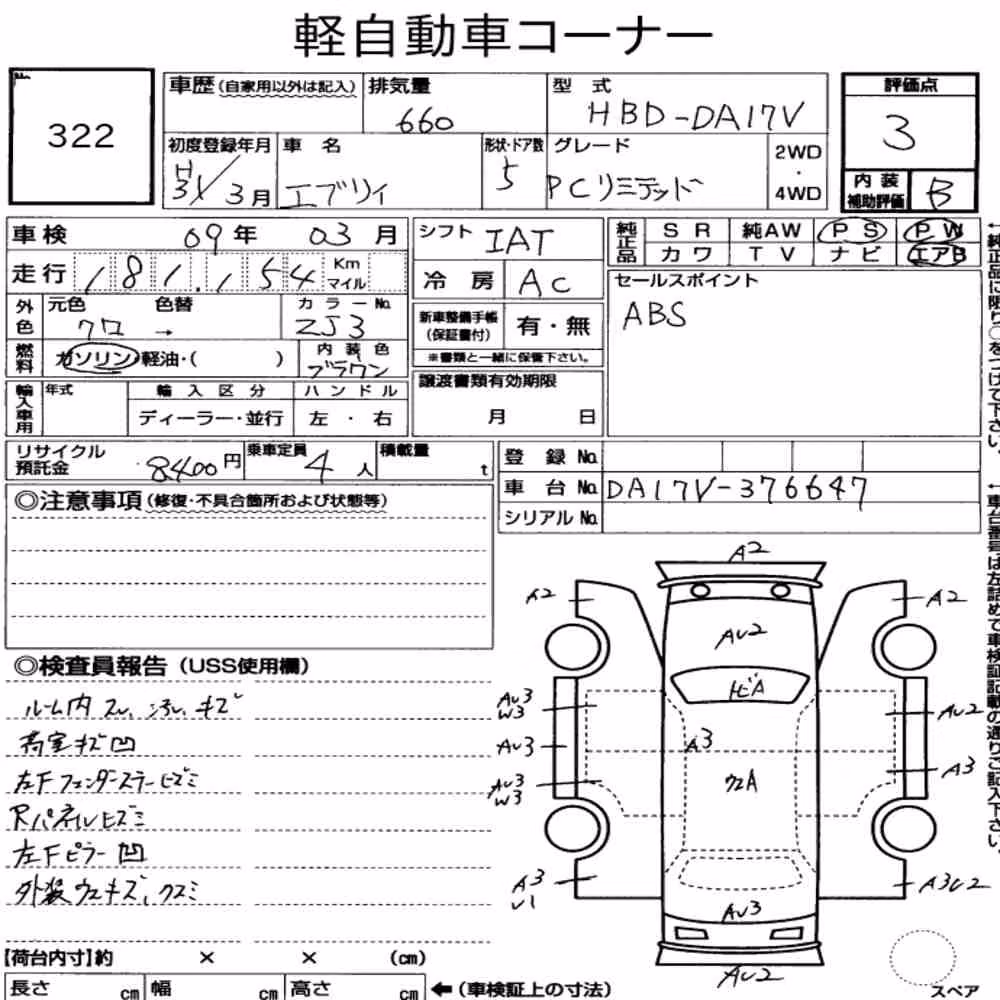 軽自動車コーナー
No.
322
車歴(自家用以外は記入) 排気量 型式
660 HBD-DA17V
初度登録年月 車名 形状・ドア数 グレード
H
31/3月 エブリィ 5 PCリミテッド
2WD
・
4WD
評価点
3
内装
補助評価 B
車検 09年 03月
走行 181,154 Km
マイル
外色 元色 色替 カラーNo.
クロ → ZJ3
燃料 ガソリン・軽油・( )
内装色
ブラウン
輸入車用 年式 輸入区分 ハンドル
ディーラー・並行 左・右
シフト IAT
冷房 AC
新車整備手帳
(保証書付) 有・無
※書類と一緒に保管下さい。
譲渡書類有効期限
月 日
純正品 SR 純AW PS PW
カワ TV ナビ エアB
セールスポイント
ABS
←純正品に限り○をつけて下さい。
リサイクル
預託金 8400円 乗車定員 4人 積載量 t
登録No.
車台No. DA17V-376647
シリアルNo.
←車台番号は左詰めで車検証記載の通りご記入下さい。
◎注意事項(修復・不具合箇所および状態等)
◎検査員報告(USS使用欄)
ルーム内 スレ、汚レ、キズ
荷室キズ凹
左Fフェンダーステーヒズミ
Rパネルヒズミ
左Fピラー凹
外装ウエキズ、クスミ
A2
A2
A2
AU2
トビA
AU3
W3
AU2
A3
AU3
A3
AU3
W3
ウエA
A3
U1
A3U2
AU3
AU2
スペア
【荷台内寸】約 × × (cm)
長さ cm 幅 cm 高さ cm ←(車検証上の寸法)